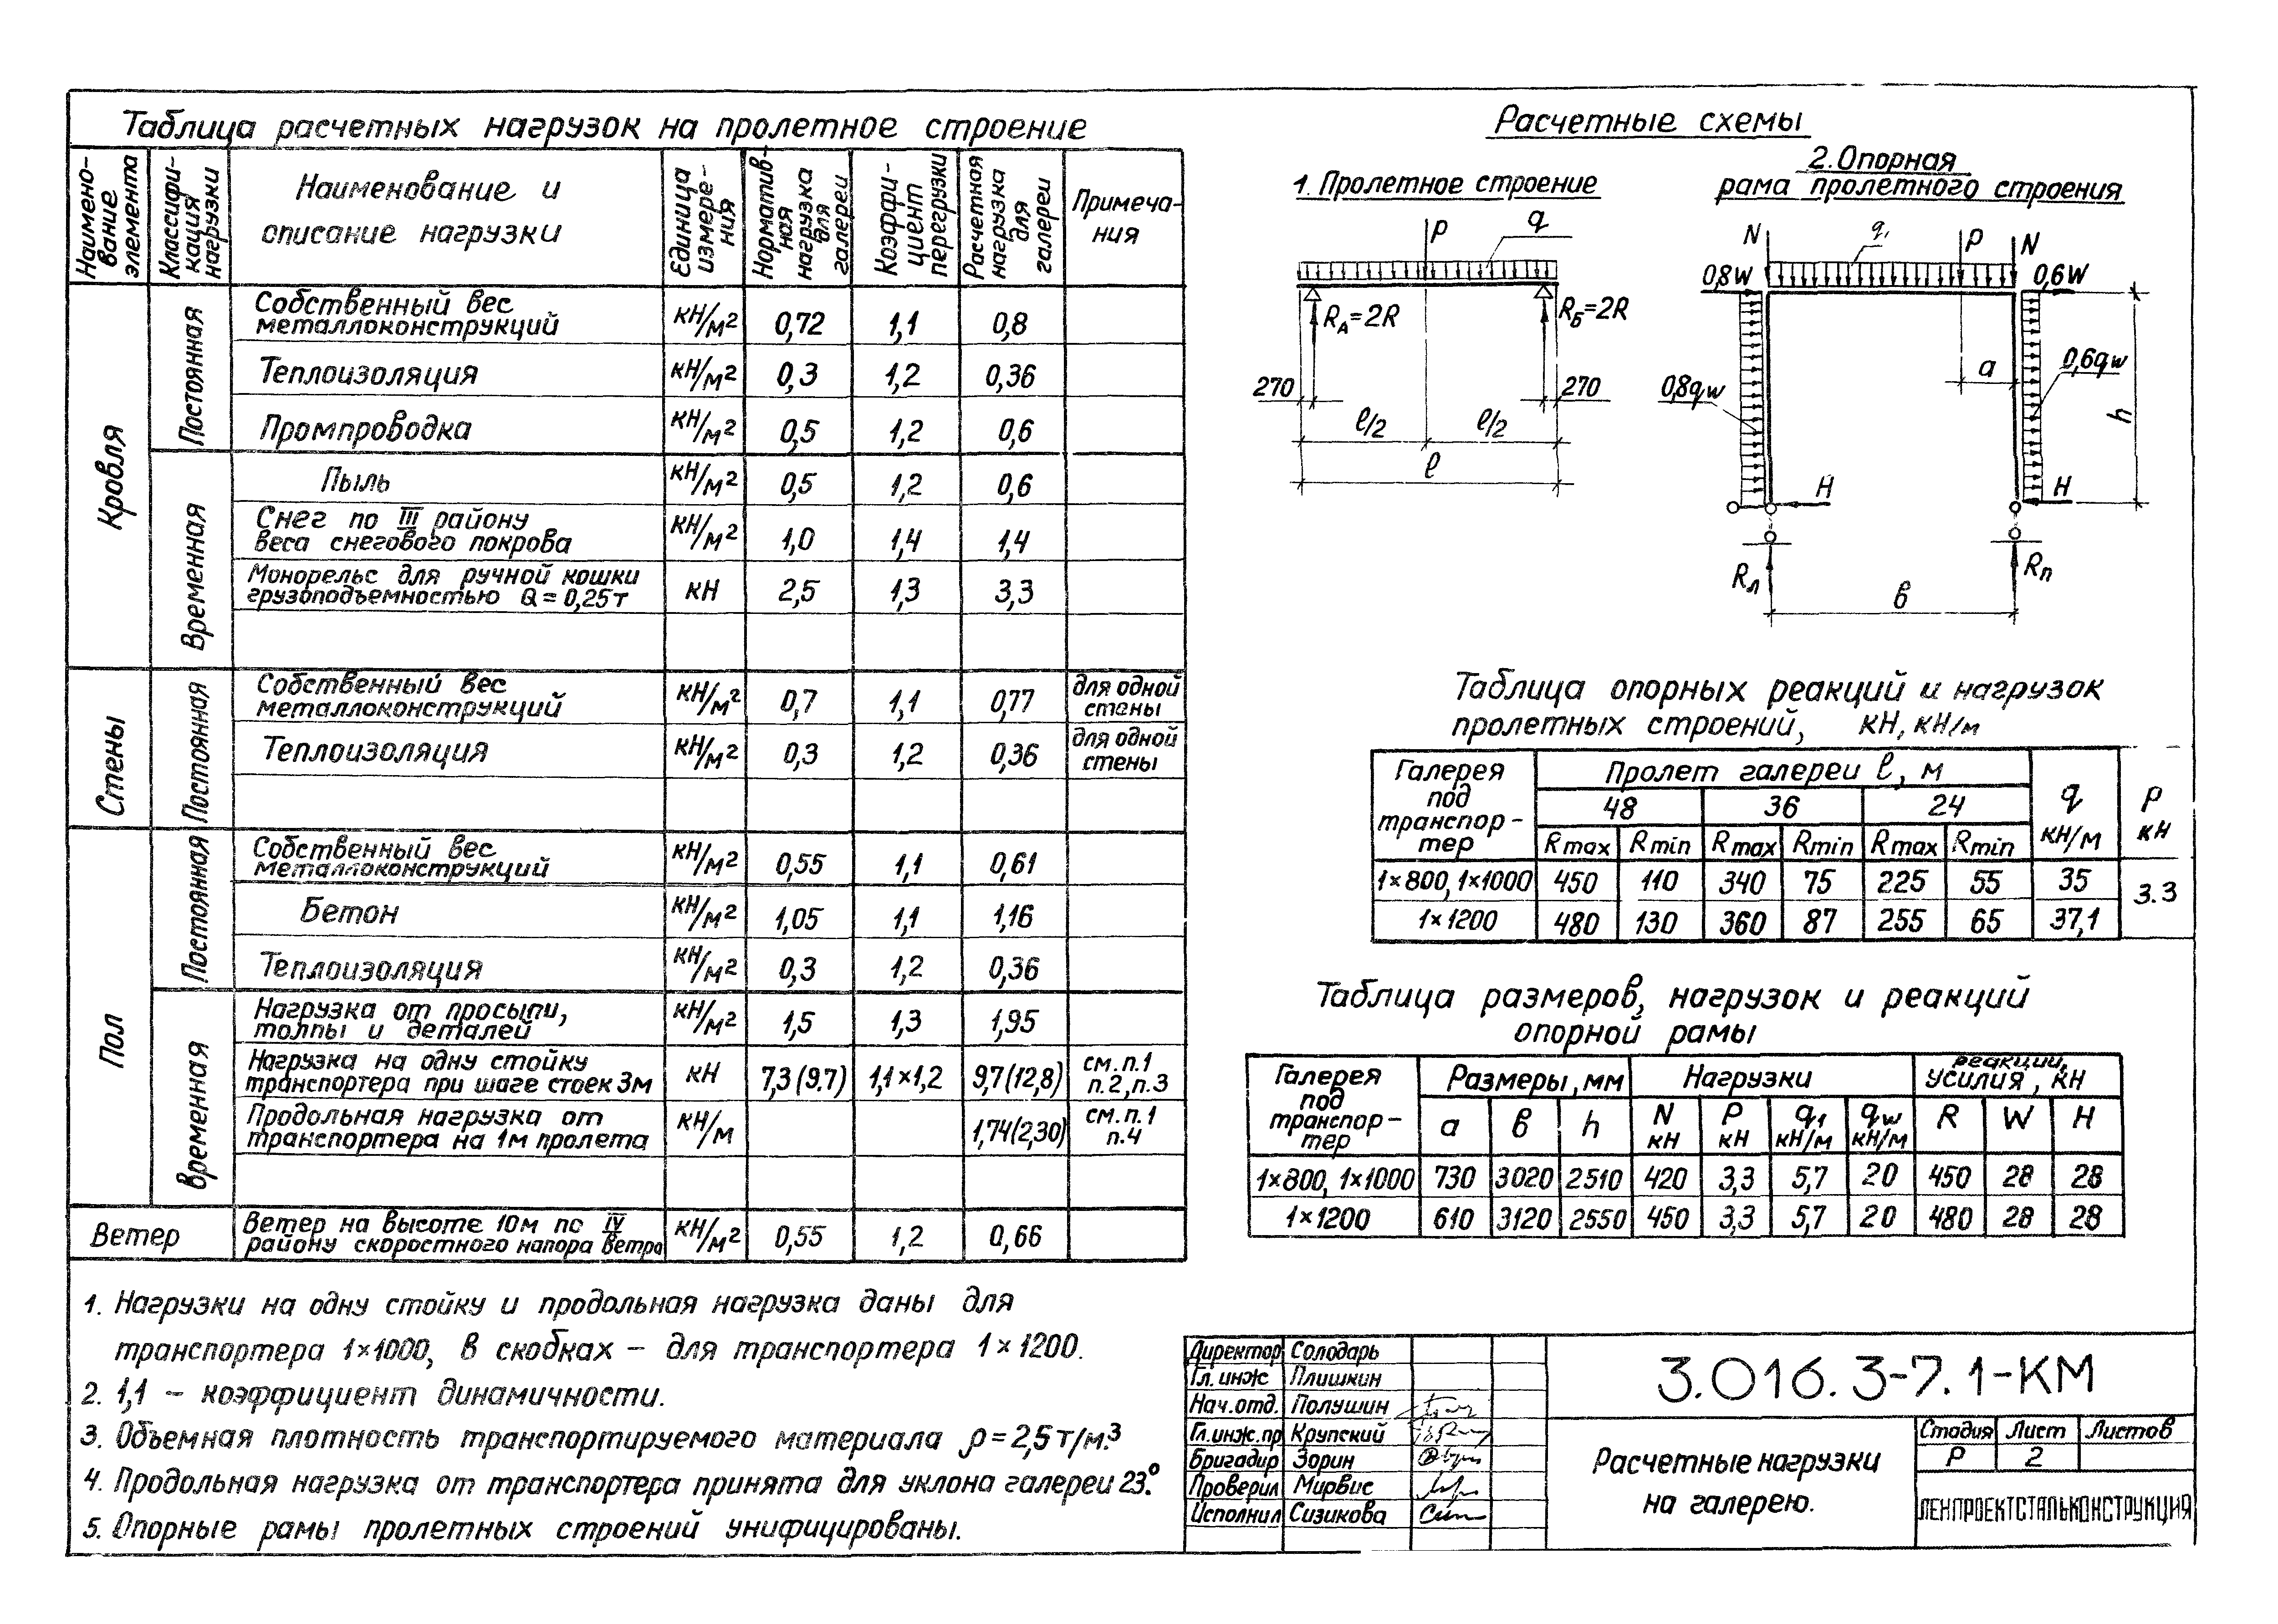 Таблица расчетных нагрузок на пролетное строение
Наимено-
вание
элемента
Классифи-
кация
нагрузки
Наименование и
описание нагрузки
Единица
измере-
ния
Норматив-
ная
нагрузка
для
галереи
Коэффи-
циент
перегрузки
Расчетная
нагрузка
для
галереи
Примеча-
ния
Кровля
Постоянная
Собственный вес
металлоконструкций
кН/м² 0,72 1,1 0,8
Теплоизоляция кН/м² 0,3 1,2 0,36
Промпроводка кН/м² 0,5 1,2 0,6
Временная
Пыль кН/м² 0,5 1,2 0,6
Снег по III району
веса снегового покрова
кН/м² 1,0 1,4 1,4
Монорельс для ручной кошки
грузоподъемностью Q = 0,25т
кН 2,5 1,3 3,3
Стены
Постоянная
Собственный вес
металлоконструкций
кН/м² 0,7 1,1 0,77
для одной
стены
Теплоизоляция кН/м² 0,3 1,2 0,36
для одной
стены
Пол
Постоянная
Собственный вес
металлоконструкций
кН/м² 0,55 1,1 0,61
Бетон кН/м² 1,05 1,1 1,16
Теплоизоляция кН/м² 0,3 1,2 0,36
Временная
Нагрузка от просыпи,
толпы и деталей
кН/м² 1,5 1,3 1,95
Нагрузка на одну стойку
транспортера при шаге стоек 3м
кН 7,3 (9.7) 1,1×1,2 9,7(12,8)
см.п.1
п.2,п.3
Продольная нагрузка от
транспортера на 1м пролета
кН/м 1,74(2,30)
см.п.1
п.4
Ветер
Ветер на высоте 10м по IV
району скоростного напора ветра
кН/м² 0,55 1,2 0,66
1. Нагрузки на одну стойку и продольная нагрузка даны для
транспортера 1×1000, в скобках – для транспортера 1×1200.
2. 1,1 – коэффициент динамичности.
3. Объемная плотность транспортируемого материала ρ = 2,5 т/м³.
4. Продольная нагрузка от транспортера принята для уклона галереи 23°.
5. Опорные рамы пролетных строений унифицированы.
Расчетные схемы
1. Пролетное строение
P q
RА=2R RБ=2R
270 270
ℓ/2 ℓ/2
ℓ
2. Опорная
рама пролетного строения
N q₁ P N
0,8W 0,6W
0,8qw a 0,6qw h
H H
Rл Rп
в
Таблица опорных реакций и нагрузок
пролетных строений, кН, кН/м
Галерея
под
транспор-
тер
Пролет галереи ℓ, м
48 36 24
Rmax Rmin Rmax Rmin Rmax Rmin
q
кН/м
P
кН
1×800, 1×1000 450 110 340 75 225 55 35
3.3
1×1200 480 130 360 87 255 65 37,1
Таблица размеров, нагрузок и реакций
опорной рамы
Галерея
под
транспор-
тер
Размеры, мм Нагрузки
реакции,
усилия, кН
a в h
N
кН
P
кН
q₁
кН/м
qw
кН/м
R W H
1×800, 1×1000 730 3020 2510 420 3,3 5,7 20 450 28 28
1×1200 610 3120 2550 450 3,3 5,7 20 480 28 28
Директор Солодарь
Гл. инж Плишкин
Нач.отд. Полушин
Гл.инж.пр Крупский
Бригадир Зорин
Проверил Мирвис
Исполнил Сизикова
3.016.3-7.1-КМ
Расчетные нагрузки
на галерею.
Стадия Лист Листов
Р 2
ЛЕНПРОЕКТСТАЛЬКОНСТРУКЦИЯ